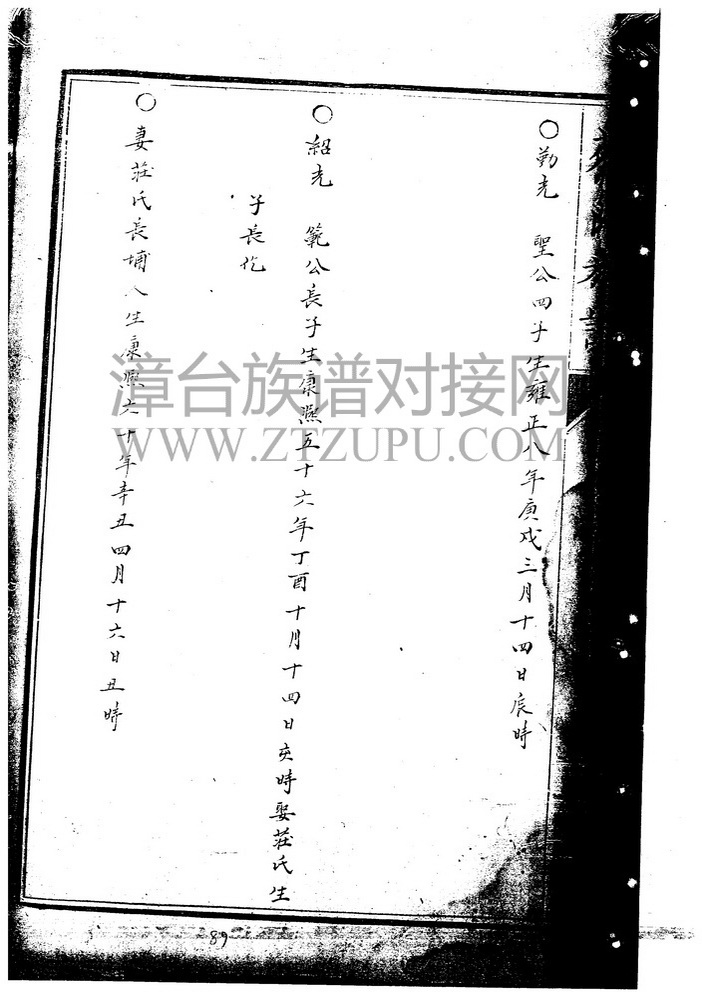 ○勤光 聖公四子生雍正八年庚戌三月十四日辰時
○紹光 範公長子生康熙五十六年丁酉十月十四日亥時娶莊氏生
子長佗
○妻莊氏長埔人生康熙六十年辛丑四月十六日丑時
漳台族谱对接网
WWW.ZTZUPU.COM
89